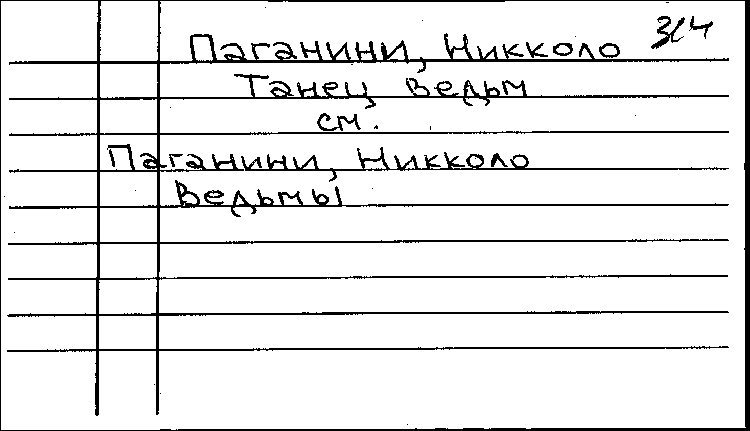 Паганини, Никколо
Танец ведьм
см.
Паганини, Никколо
Ведьмы